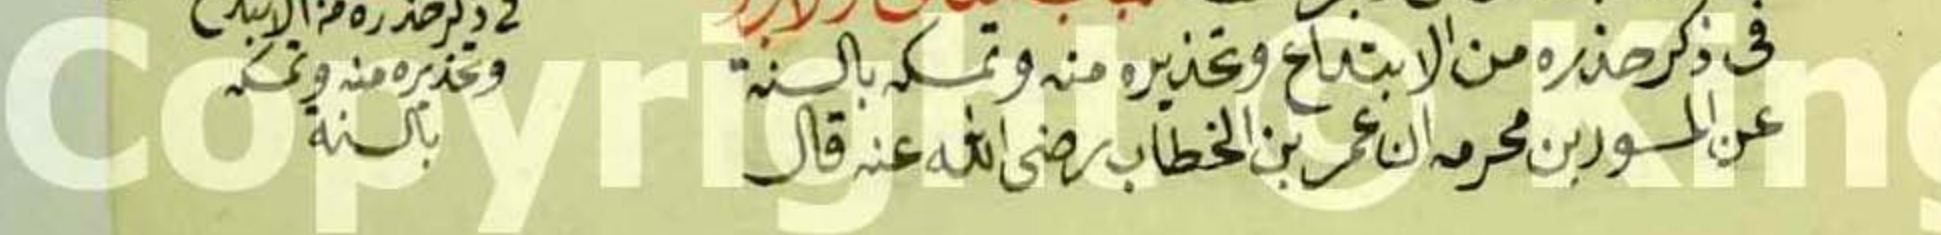 في ذكر حذره من الابتداع وتحذيره منه وتمسكه بالسنة
عن المسور بن محرمه ان عمر بن الخطاب رضى الله عنه قال
في ذكر حذره من الابتداع
وتحذيره منه وتمسكه
بالسنة
Copyright © King